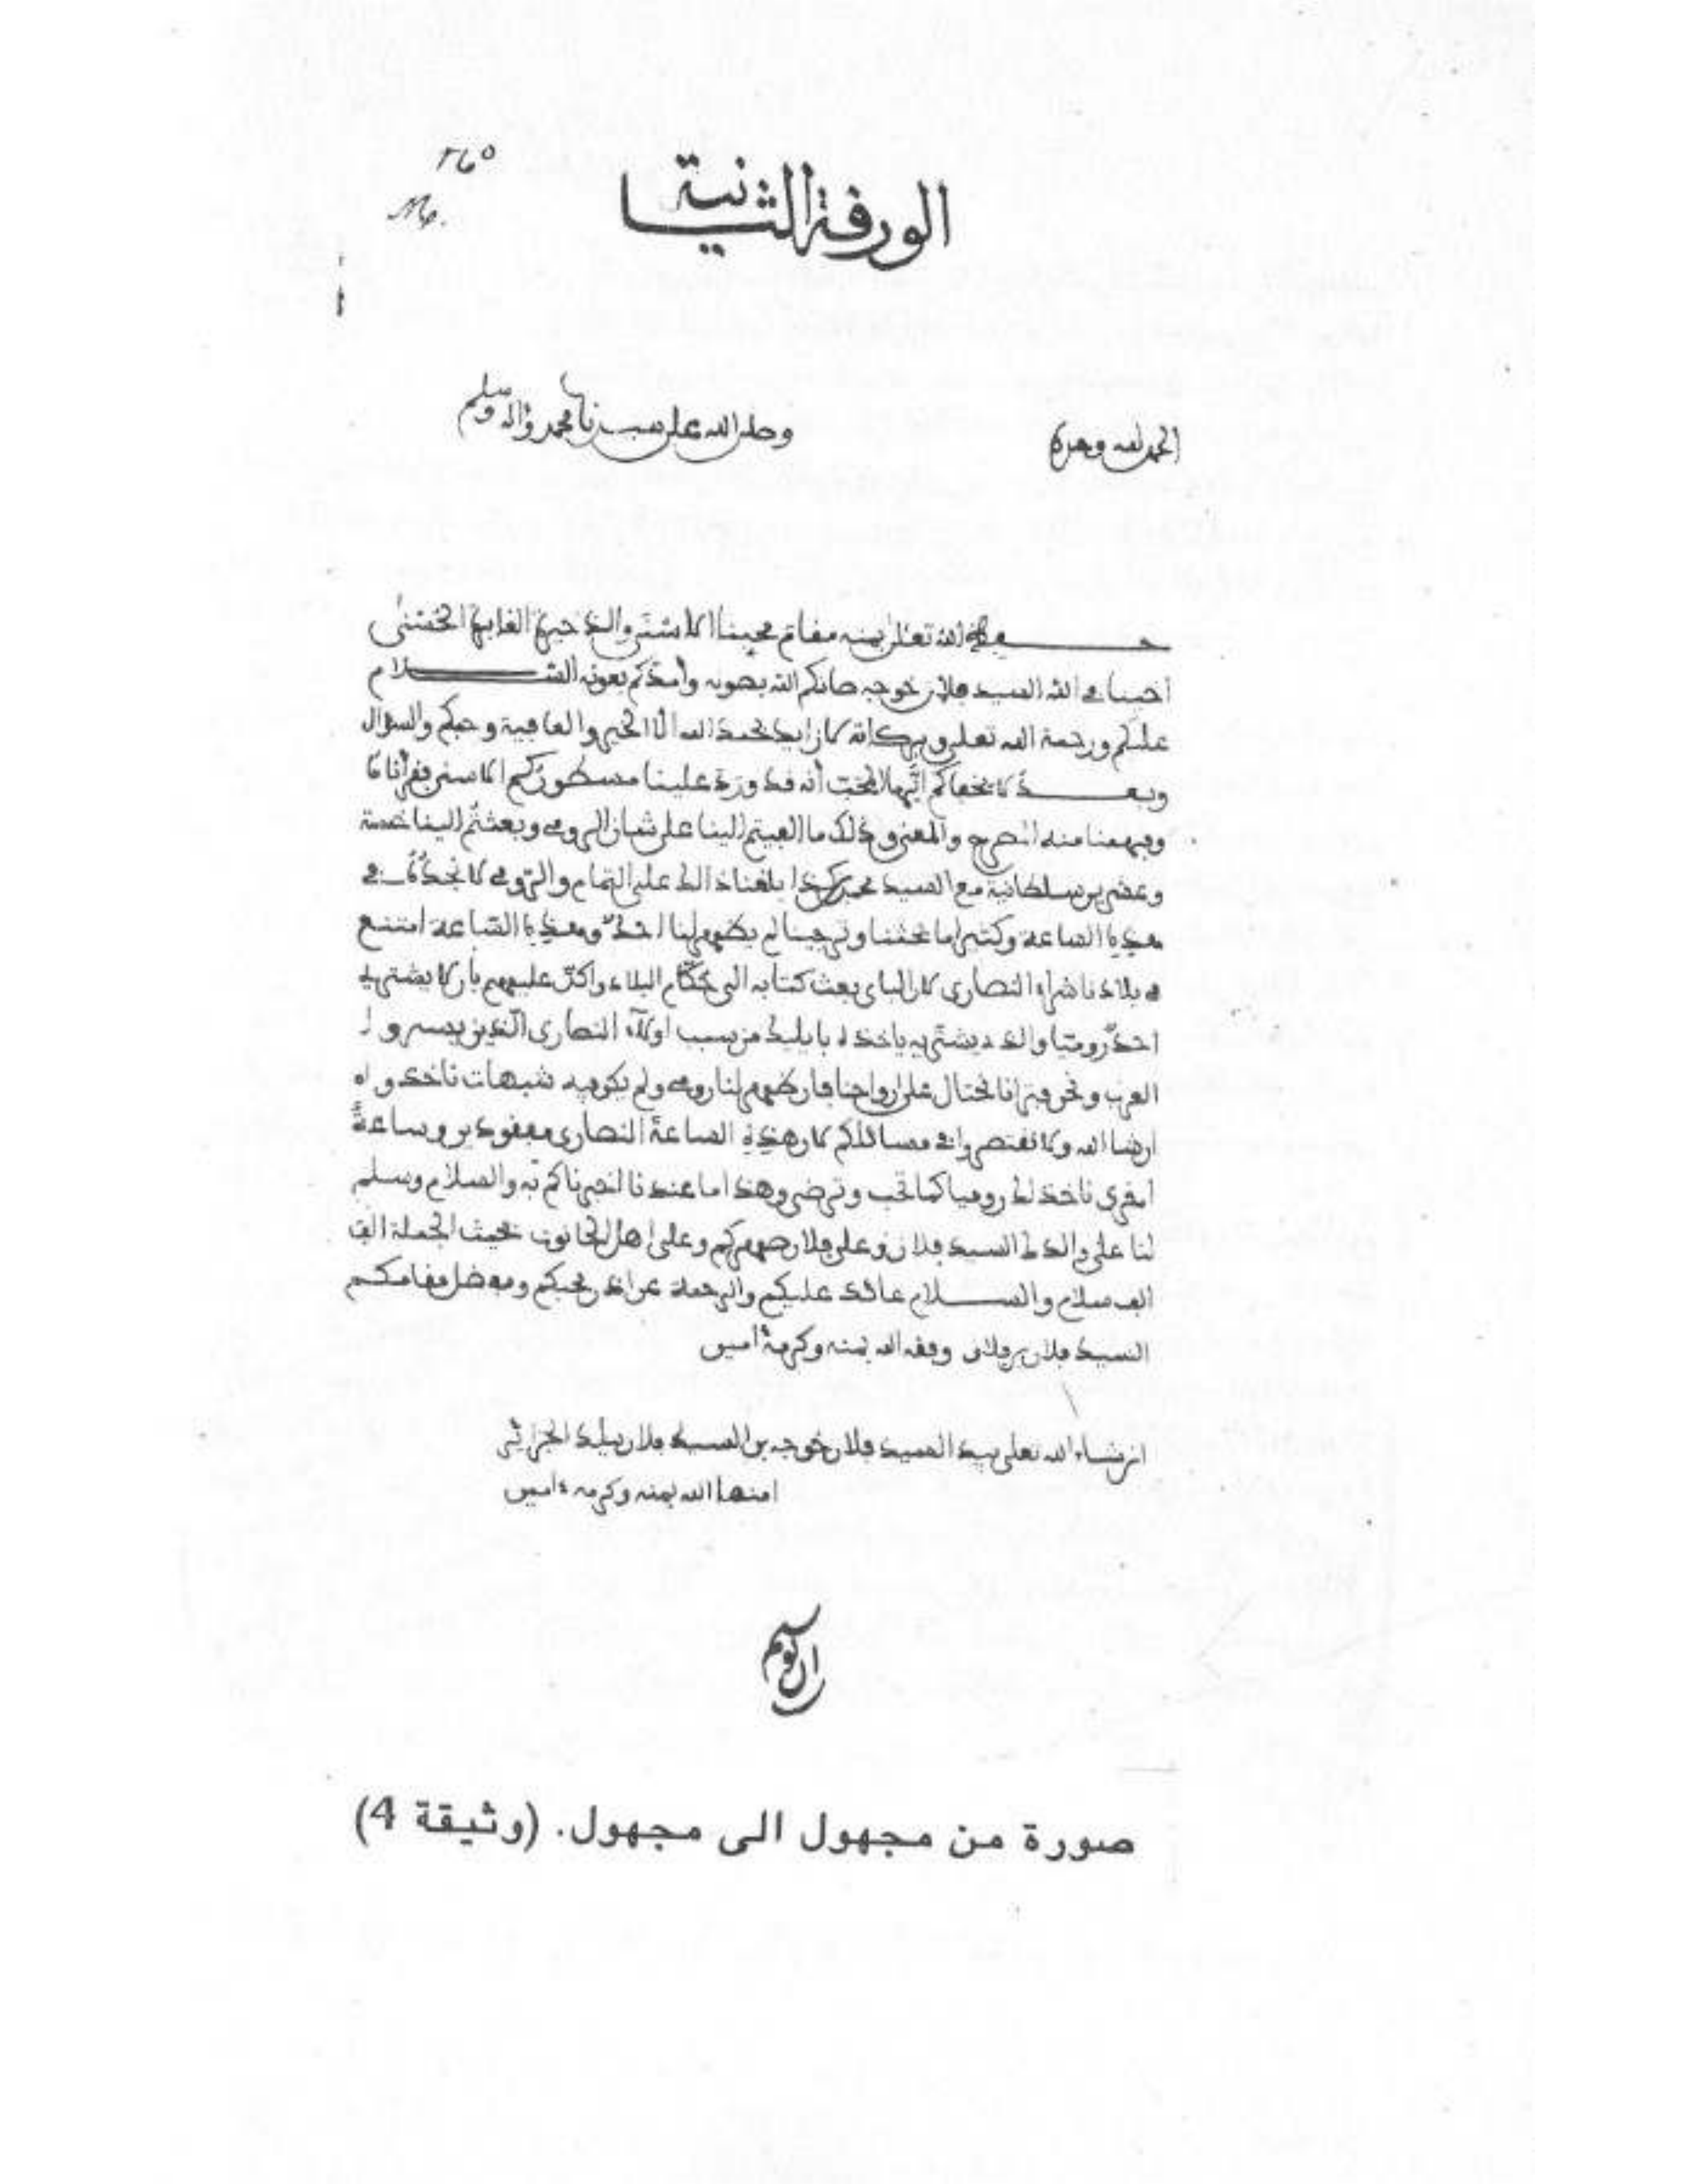 ٢٦٥
الورقة الثانية
الحمد لله وحده
وصلى الله على سيدنا محمد وآله وسلم
حفظ الله تعلى بمنه مقام محبنا الاسنى
أخينا في الله السيد فلان خوجه صانكم الله بصونه وأمدكم بعونه السلام
عليكم ورحمة الله تعلى وبركاته كان زايد بحمد الله الا الخير والعافية وحبكم والسؤال
وبعد لا يخفاكم ايها المحب أنه قد ورد علينا مسطوركم الاسنى فقرأناه
وفهمنا منه المصرح والمعنى وذلك ما الفيتم الينا على شان الرومي وبعثتم الينا خمسة
وعشرين سلطانية مع السيد محمد بلغنا ذالك على التمام والرومي لا نجده في
هذه الساعة وكثير اما بحثنا وترجينا لم يظهر لنا احد وهذه الساعة امتنع
في بلادنا شراء النصارى كان الباي بعث كتابه الى حكام البلاد واكد عليهم بان لا يشتري
احد روميا والذي يشتريه ياخذه بايليك من سبب اولاد النصارى الذين يسروا
العرب ونحن قبرانا نحتال على ارواحنا فان ظهر لنا رومي ولم يكن فيه شبهات ناخذوه
ان شا الله ولا نقتصروا في مسائلكم كان هذه الساعة النصارى مفقودين وساعة
اخرى ناخذ لك روميا كما تحب وترضى وهذا ما عندنا اخبرناكم به والسلام وسلم
لنا على والدك السيد فلان وعلى فلان صهركم وعلى اهل الحانوت بحيث الجملة الف
الف سلام والسلام عائد عليكم والرحمة عن اذن محبكم ومعظم مقامكم
السيد فلان بن فلان وفقه الله بمنه وكرمه أمين
ان شاء الله تعلى بيد السيد فلان خوجه بن السيد فلان ببلد الجزائر
امنها الله بمنه وكرمه ءامين
صورة من مجهول الى مجهول. (وثيقة 4)